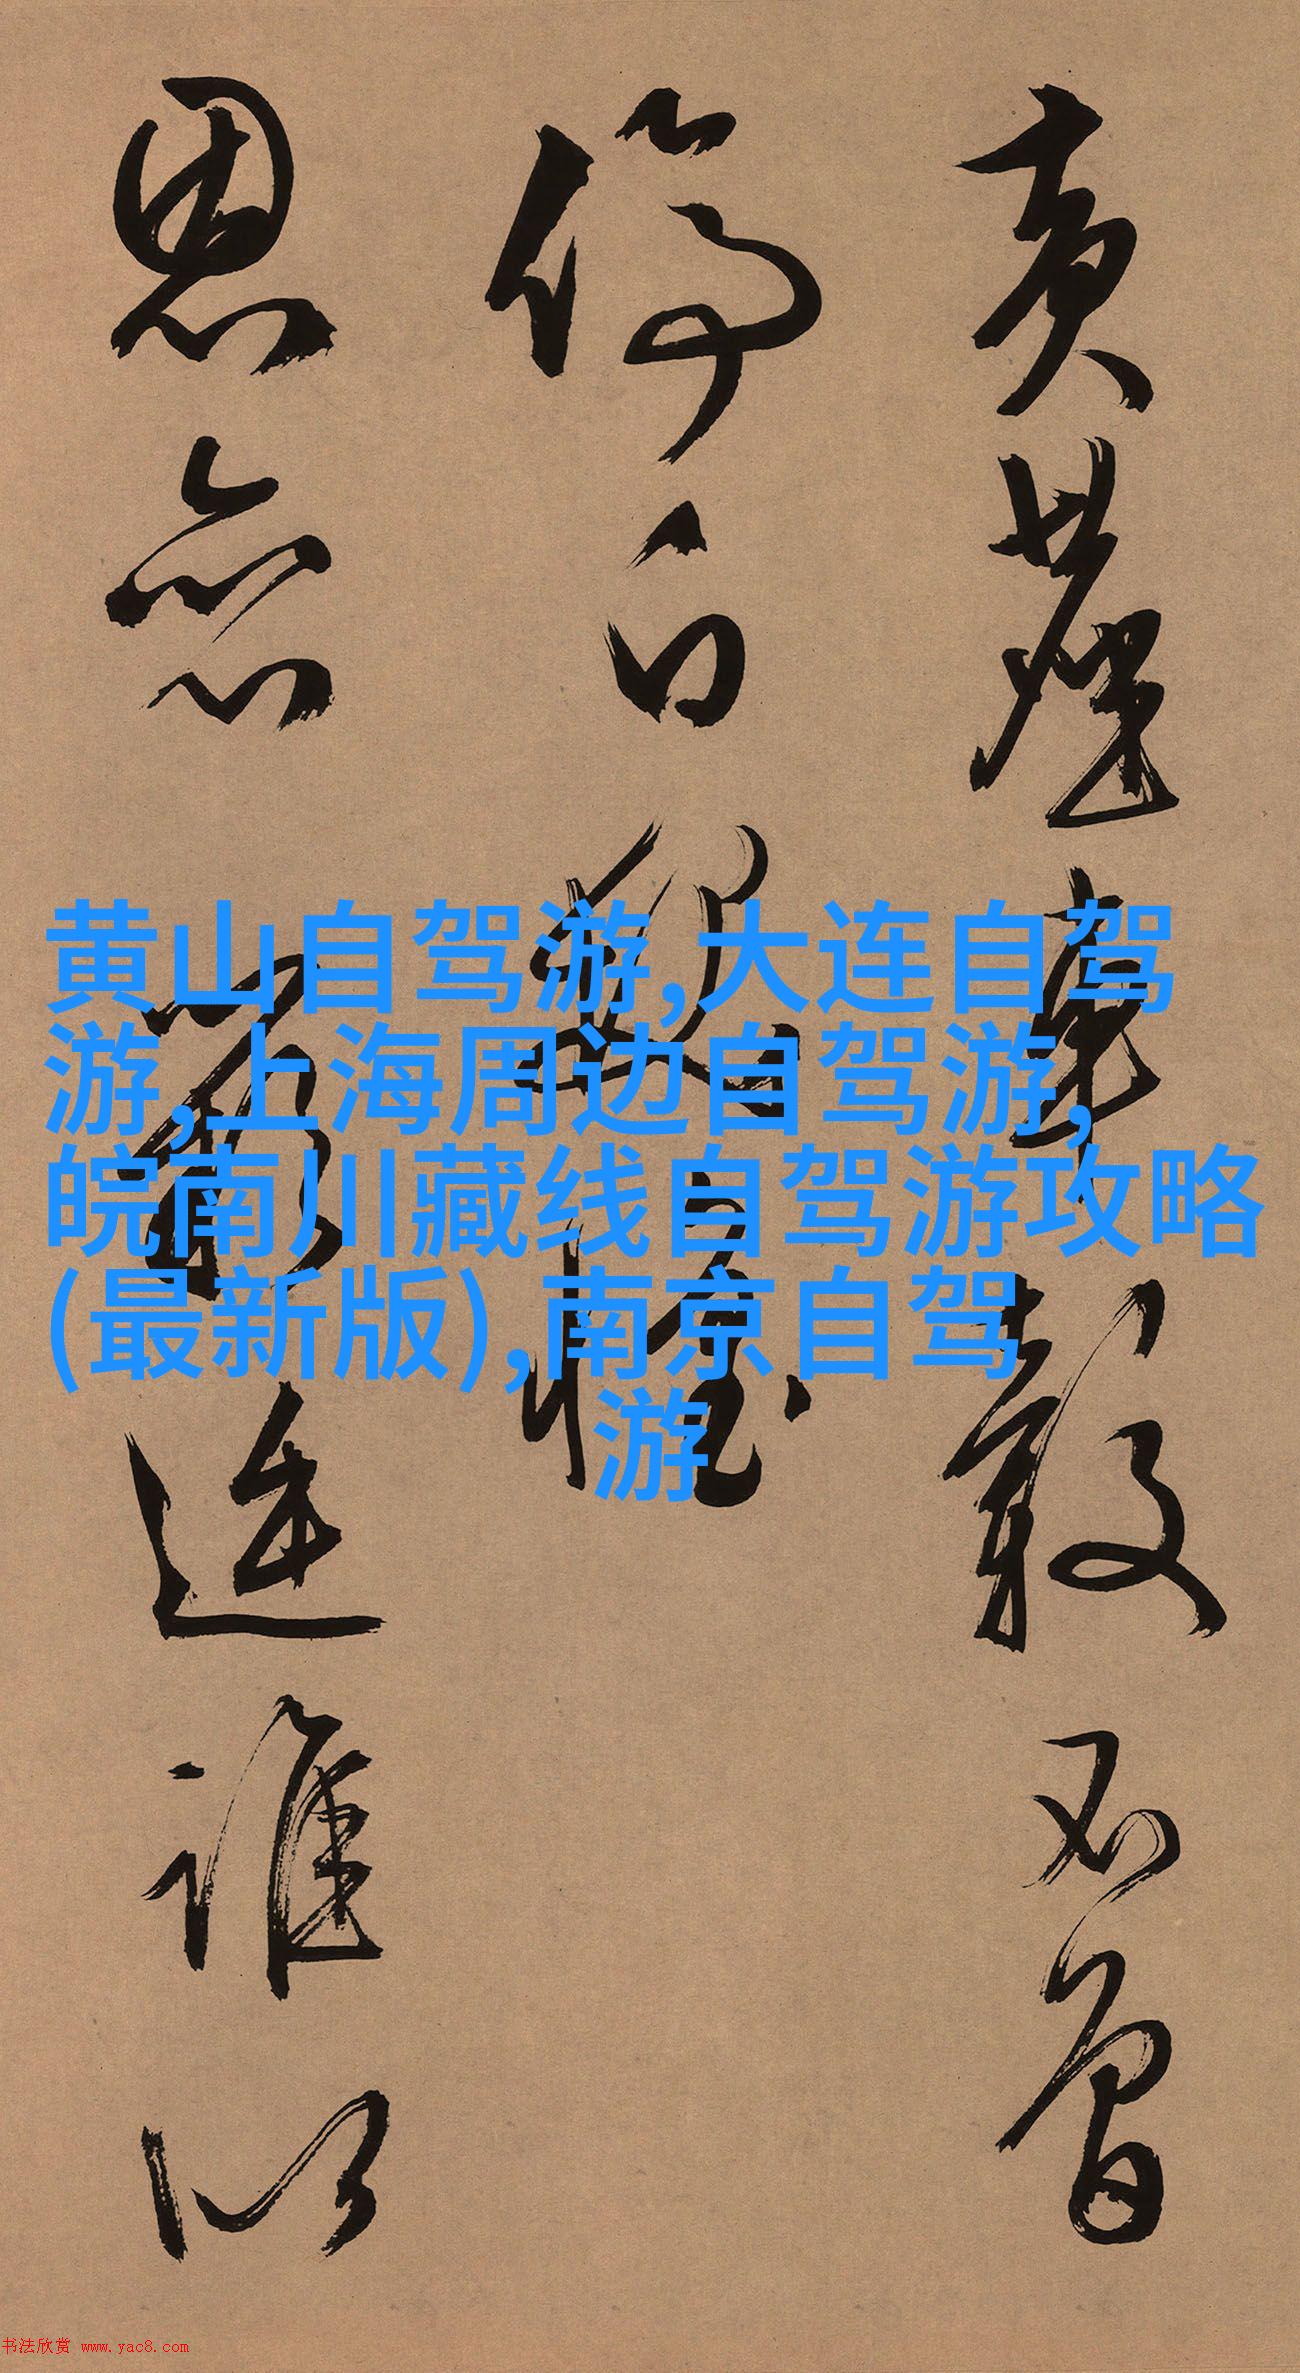 黄山自驾游,大连自驾
游,上海周边自驾游,
皖南川藏线自驾游攻略
(最新版),南京自驾
游
黃塵車轂不曾
停白
誰以
书法欣赏 www.yac8.com